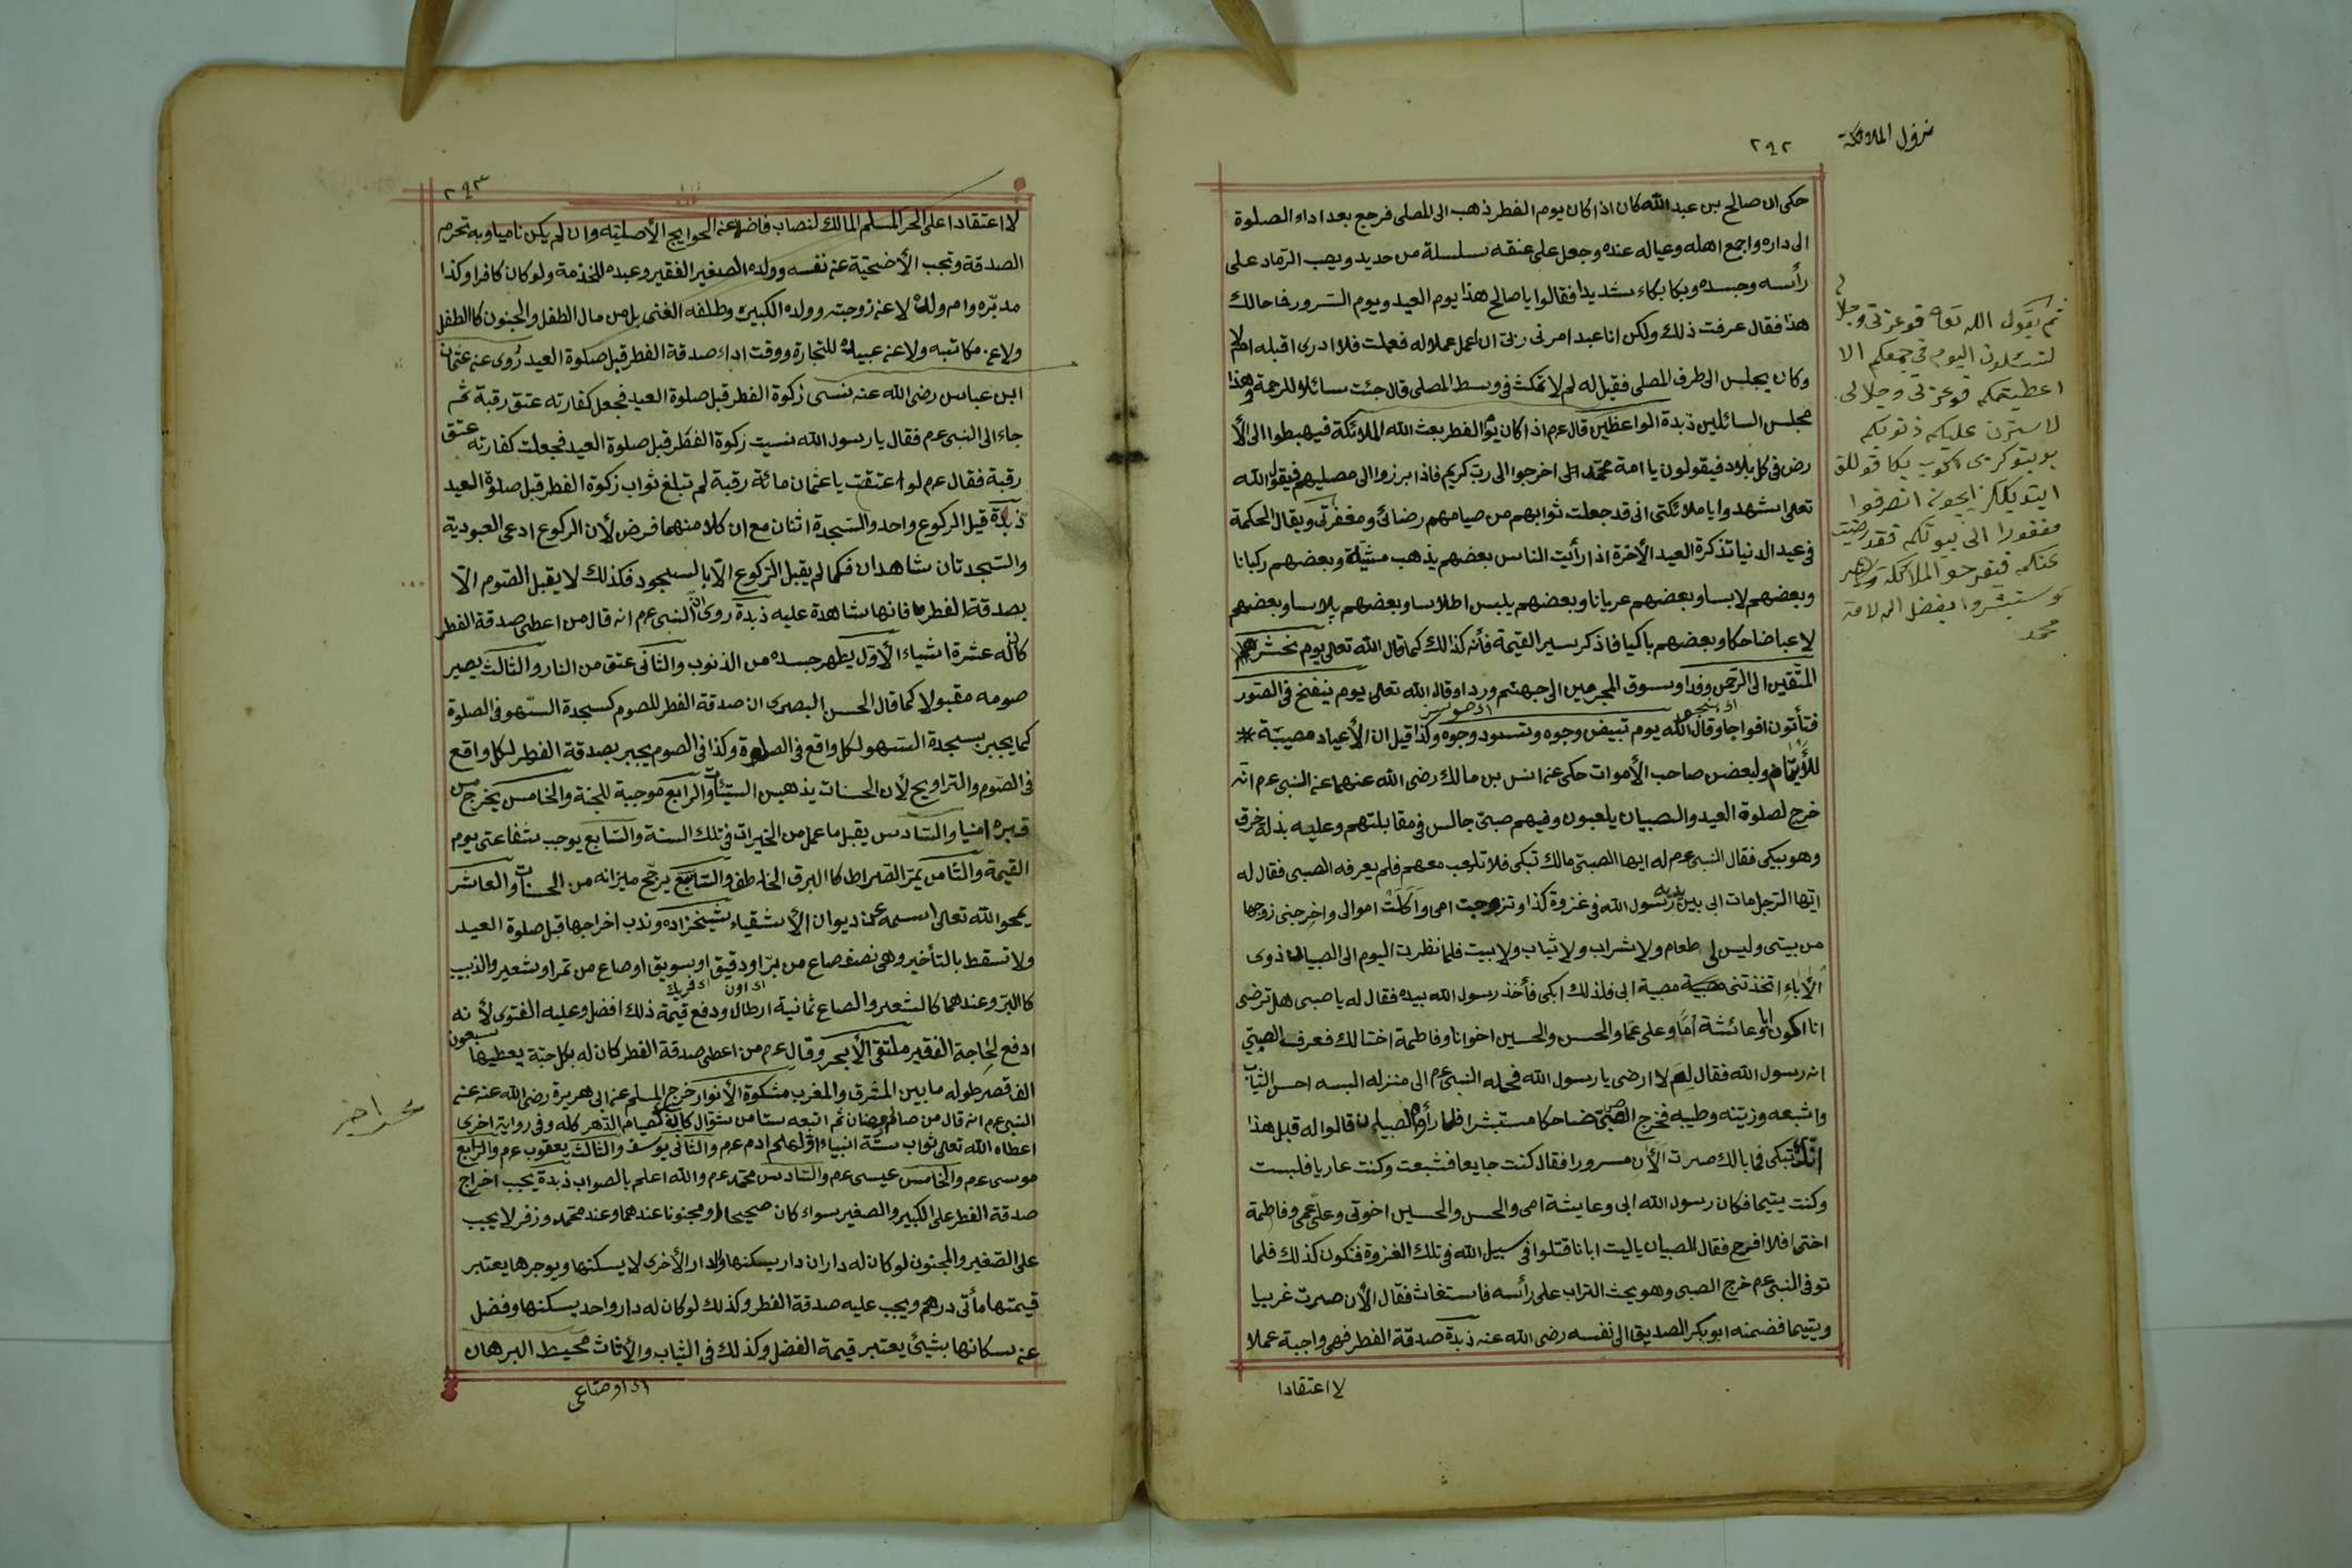 نزول الملائكة
٢٩٢
حكى ان صالح بن عبد الله كان اذا كان يوم الفطر ذهب الى المصلى فرجع بعد اداء الصلوة
الى داره واجمع اهله وعياله عنده وجعل على عنقه سلسلة من حديد ويصب الرماد على
رأسه وجسده وبكا بكاء شديدا فقالوا يا صالح هذا يوم العيد ويوم السرور فما حالك
هذا فقال عرفت ذلك ولكن انا عبد امرنى ربى ان اعمل عملا له فعملت فلا ادرى اقبله ام لا
وكان يجلس الى طرف المصلى فقيل له لم لا تمكث فى وسط المصلى قال جئت سائلا للرحمة وهذا
مجلس السائلين زبدة الواعظين قال عم اذا كان يوم الفطر بعث الله الملائكة فيهبطوا الى الأ
رض فى كل بلاد فيقولون يا امة محمد اخرجوا الى رب كريم فاذا برزوا الى مصليهم فيقول الله
تعلى اشهدوا يا ملائكتى انى قد جعلت ثوابهم من صيامهم رضائى ومغفرتى ويقال الحكمة
فى عيد الدنيا تذكرة العيد الأخرة اذا رأيت الناس بعضهم يذهب مشية وبعضهم ركبانا
وبعضهم لابسا وبعضهم عريانا وبعضهم يلبس اطلاسا وبعضهم پلاسا وبعضهم
لاعبا ضاحكا وبعضهم باكيا فاذكر سير القيمة فأنه كذالك كما قال الله تعالى يوم نحشر
المتقين الى الرحمن وفدا ونسوق المجرمين الى جهنم وردا وقال الله تعلى يوم ينفخ فى الصور
فتأتون افواجا وقال الله يوم تبيض وجوه وتسود وجوه وكذا قيل ان الأعياد مصيبة *
للأيتام ولبعض صاحب الأموات حكى عن انس بن مالك رضى الله عنهما عن النبى عم انه
خرج لصلوة العيد والصبيان يلعبون وفيهم صبى جالس فى مقابلتهم وعليه بذلة خرق
وهو يبكى فقال النبى عم له ايها الصبى مالك تبكى فلا تلعب معهم فلم يعرفه الصبى فقال له
ايها الرجل مات ابى بين يديه رسول الله فى غزوة كذا وتزوجت امى وأكلت اموالى واخرجنى زوجها
من بيتى وليس لى طعام ولا شراب ولا ثياب ولا بيت فلما نظرت اليوم الى الصبيان ذوى
الأباء اتخذتنى مصيبة ابى فلذلك ابكى فأخذ رسول الله بيده فقال له يا صبى هل ترضى
انا اكون ابا وعائشة أمًا وعلى عما والحسن والحسين اخوانا وفاطمة اختا لك فعرف الصبى
انه رسول الله فقال لم لا ارضى يا رسول الله فحمله النبى عم الى منزله البسه احسن الثياب
واشبعه وزينه وطيبه فخرج الصبى ضاحكا مستبشرا فلما رأوه الصبيان قالوا له قبل هذا
انك تبكى فما بالك صرت الأن مسرورا فقال كنت جايعا فشبعت وكنت عاريا فلبست
وكنت يتيما فكان رسول الله ابى وعايشة امى والحسن والحسين اخوتى وعلى عمى وفاطمة
اختى افلا افرح فقال الصبيان ياليت ابانا قتلوا فى سبيل الله فى تلك الغزوة فنكون كذلك فلما
توفى النبى عم خرج الصبى وهو يحث التراب على رأسه فاستغاث فقال الأن صرت غريبا
ويتيما فضمنه ابو بكر الصديق الى نفسه رضى الله عنه زبدة صدقة الفطر فهى واجبة عملا
لا اعتقادا
ثم يقول الله
لتسئلون اليوم فى جمعكم الا
اعطيتكم فوعزتى وجلالى
لاسترن عليكم ذنوبكم
انصرفوا
مغفورا الى بيوتكم فقد رضيت
عنكم فتفرحو الملائكة
وستبشروا بفضل
٢٩٣
لا اعتقادا على الحر المسلم المالك لنصاب فاضل عن الحوايج الأصلية وان لم يكن ناميا وبه تحرم
الصدقة وتجب الأضحية عن نفسه وولده الصغير الفقير وعبده للخذمة ولو كان كافرا وكذا
مدبره وام ولده لا عن زوجته وولده الكبير وطلفه الغنى بل من مال الطفل والمجنون كالطفل
ولا عن مكاتبه ولا عن عبيده للتجارة ووقت اداء صدقة الفطر قبل صلوة العيد رُوى عن عثمان
ابن عباس رضى الله عنه نسى زكوة الفطر قبل صلوة العيد فجعل كفارته عتق رقبة ثم
جاء الى النبى عم فقال يا رسول الله نسيت زكوة الفطر قبل صلوة العيد فجعلت كفارته عتق
رقبة فقال عم لو اعتقت يا عثمان مائة رقبة لم تبلغ ثواب زكوة الفطر قبل صلوة العيد
زبدة قيل الركوع واحد والسجدة اثنان مع ان كلا منهما فرض لأن الركوع ادعى العبودية
والسجدتان شاهدان فكما لم يقبل الركوع الا بالسجود فكذلك لا يقبل الصوم الا
بصدقة الفطر فانها شاهدة عليه زبدة روى ان النبى عم انه قال من اعطى صدقة الفطر
كان له عشرة اشياء الأول يطهر جسده من الذنوب والثانى عتق من النار والثالث يصير
صومه مقبولا كما قال الحسن البصرى ان صدقة الفطر للصوم كسجدة السهو فى الصلوة
كما يجبر بسجدة السهو لكل واقع فى الصلوة وكذا فى الصوم يجبر بصدقة الفطر لكل واقع
فى الصوم والتراويح لأن الحسنات يذهبن السيئات والرابع موجبة للجنة والخامس يخرج من
قبره امنيا والسادس يقبل ما عمل من الخيرات فى تلك السنة والسابع يوجب شفاعتى يوم
القيمة والثامن يمر الصراط كالبرق الخاطف والتاسع يرجح ميزانه من الحسنات والعاشر
يمحو الله تعالى اسمه عن ديوان الأشقياء شيخزاده وندب اخراجها قبل صلوة العيد
ولا تسقط بالتأخير وهى نصف صاع من بر او دقيق او سويق او صاع من تمر او شعير والزبيب
كالبر وعندهما كالشعير والصاع ثمانية ارطال ودفع قيمة ذلك افضل وعليه الفتوى لأنه
ادفع لحاجة الفقير ملتقى الأبحر وقال عم من اعطى صدقة الفطر كان له بكل حبة يعطيها سبعون
الف قصر طوله ما بين المشرق والمغرب مشكوة الأنوار خرج المسلم عن ابى هريرة رضى الله عنه عن
النبى عم انه قال من صام رمضان ثم اتبعه ستا من شوال كان كصيام الدهر كله وفى رواية اخرى
اعطاه الله تعلى ثواب ستة انبياء اولهم ادم عم والثانى يوسف والثالث يعقوب عم والرابع
موسى عم والخامس عيسى عم والسادس محمد عم والله اعلم بالصواب زبدة يجب اخراج
صدقة الفطر على الكبير والصغير سواء كان صحيحا او مجنونا عندهما وعند محمد وزفر لا يجب
على الصغير والمجنون لو كان له داران دار يسكنها والدار الأخرى لا يسكنها ويوجرها يعتبر
قيمتها مأتى درهم ويجب عليه صدقة الفطر وكذلك لو كان له دار واحد يسكنها وفضل
عن سكانها بشيئ يعتبر قيمة الفضل وكذلك فى الثياب والأثاث محيط البرهان